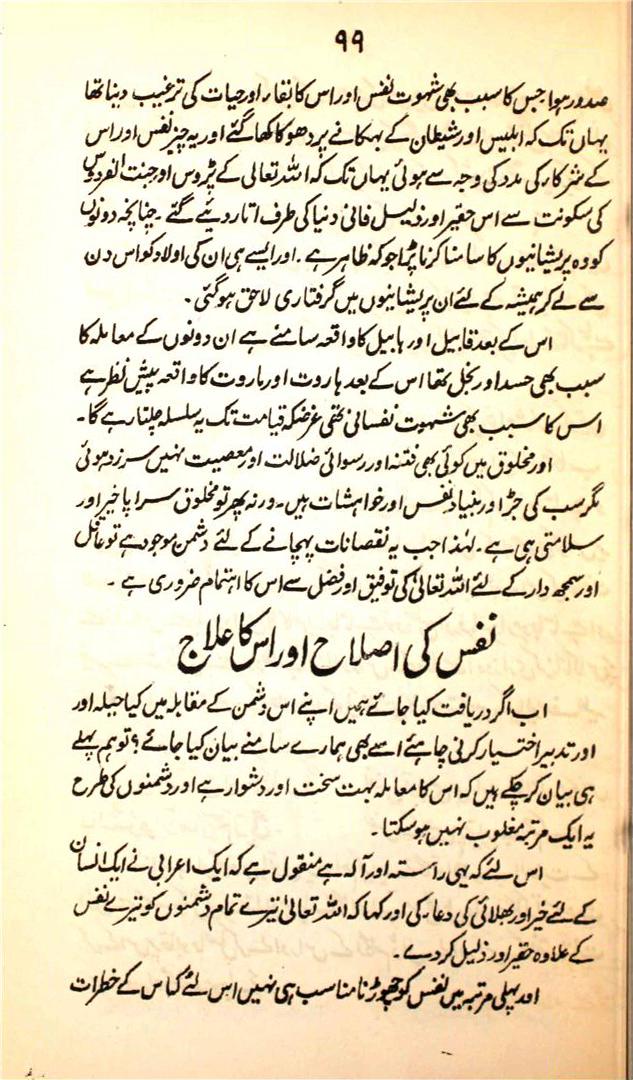 ۹۹
صدور ہوا جس کا سبب بھی شہوت نفس اور اس کا بقاء اور حیات کی ترغیب دینا تھا
یہاں تک کہ ابلیس اور شیطان کے بہکانے پر دھوکا کھا گئے اور یہ چیز نفس اور اس
کے شرکاء کی مدد کی وجہ سے ہوئی یہاں تک کہ اللہ تعالی کے پڑوس اور جنت الفردوس
کی سکونت سے اس حقیر اور ذلیل فانی دنیا کی طرف اتار دیئے گئے۔ چنانچہ دونوں
کو وہ پریشانیوں کا سامنا کرنا پڑا جو کہ ظاہر ہے۔ اور ایسے ہی ان کی اولاد کو اس دن
سے لے کر ہمیشہ کے لئے ان پریشانیوں میں گرفتاری لاحق ہو گئی۔
اس کے بعد قابیل اور ہابیل کا واقعہ سامنے ہے ان دونوں کے معاملہ کا
سبب بھی حسد اور بخل تھا اس کے بعد ہاروت اور ماروت کا واقعہ پیش نظر ہے
اس کا سبب بھی شہوت نفسانی تھی غرضکہ قیامت تک یہ سلسلہ چلتا رہے گا۔
اور مخلوق میں کوئی بھی فتنہ اور رسوائی ضلالت اور معصیت نہیں سرزد ہوئی
مگر سب کی جڑ اور بنیاد نفس اور خواہشات ہیں۔ ورنہ پھر تو مخلوق سراپا خیر اور
سلامتی ہی ہے۔ لہٰذا جب یہ نقصانات پہچانے کے لئے دشمن موجود ہے تو عاقل
اور سمجھ دار کے لئے اللہ تعالیٰ کی توفیق اور فضل سے اس کا اہتمام ضروری ہے۔
نفس کی اصلاح اور اس کا علاج
اب اگر دریافت کیا جائے ہمیں اپنے اس دشمن کے مقابلہ میں کیا حیلہ اور
اور تدبیر اختیار کرنی چاہئے اسے بھی ہمارے سامنے بیان کیا جائے؟ تو ہم پہلے
ہی بیان کر چکے ہیں کہ اس کا معاملہ بہت سخت اور دشوار ہے اور دشمنوں کی طرح
یہ ایک مرتبہ مغلوب نہیں ہو سکتا۔
اس لئے کہ یہی راستہ اور آلہ ہے منقول ہے کہ ایک اعرابی نے ایک انسان
کے لئے خیر اور بھلائی کی دعا کی اور کہا کہ اللہ تعالیٰ تیرے تمام دشمنوں کو تیرے نفس
کے علاوہ حقیر اور ذلیل کر دے۔
اور پہلی مرتبہ میں نفس کو چھوڑنا مناسب ہی نہیں اس لئے کہ اس کے خطرات